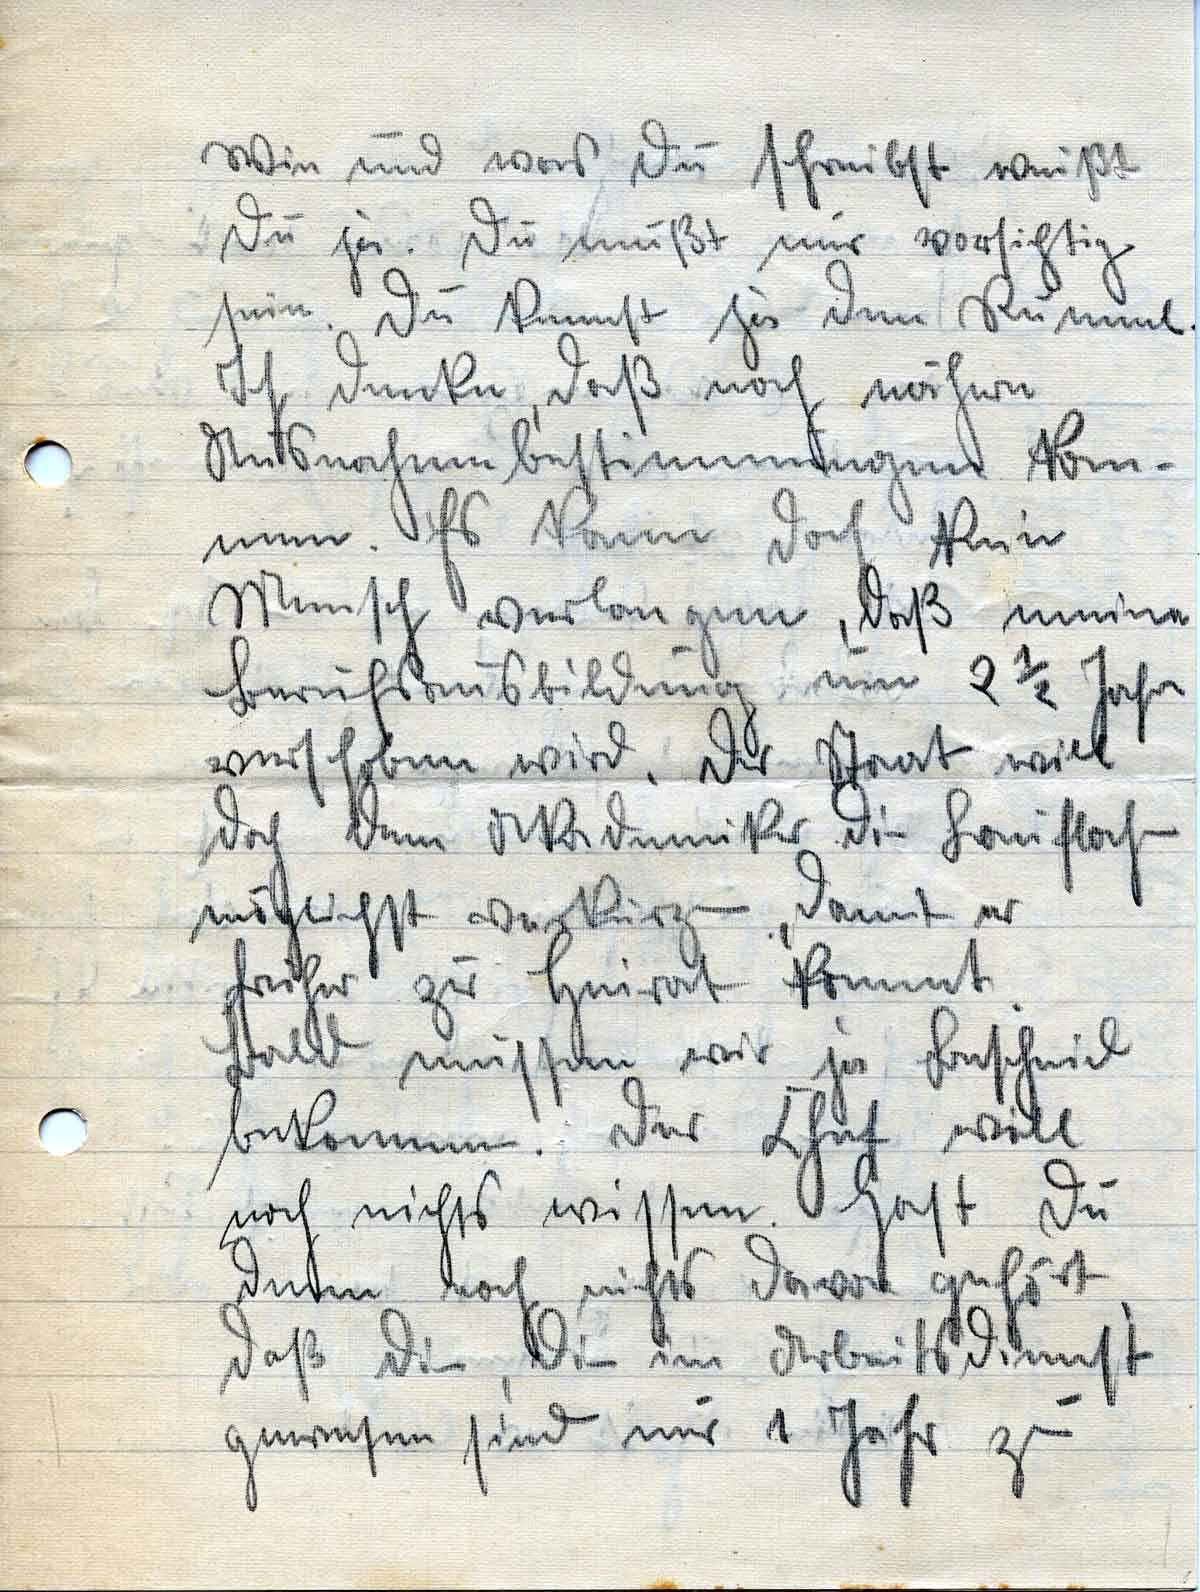 Wie und was Du schreibst weißt
Du ja. Du mußt nur vorsichtig
sein. Du kennst ja den Rummel.
Ich denke, daß noch nähere
Ausnahmebestimmungen kom-
men. Es kann doch kein
Mensch verlangen, daß meine
Berufsausbildung um 2 1/2 Jahre
verschoben wird. Der Staat will
doch dem Akademiker die Laufbahn
möglichst verkürzen, damit er
früher zur Heirat kommt.
Bald müssen wir ja Bescheid
bekommen. Der Chef will
noch nichts wissen. Hast Du
denn noch nichts davon gehört,
daß die, die im Arbeitsdienst
gewesen sind nur 1 Jahr zu